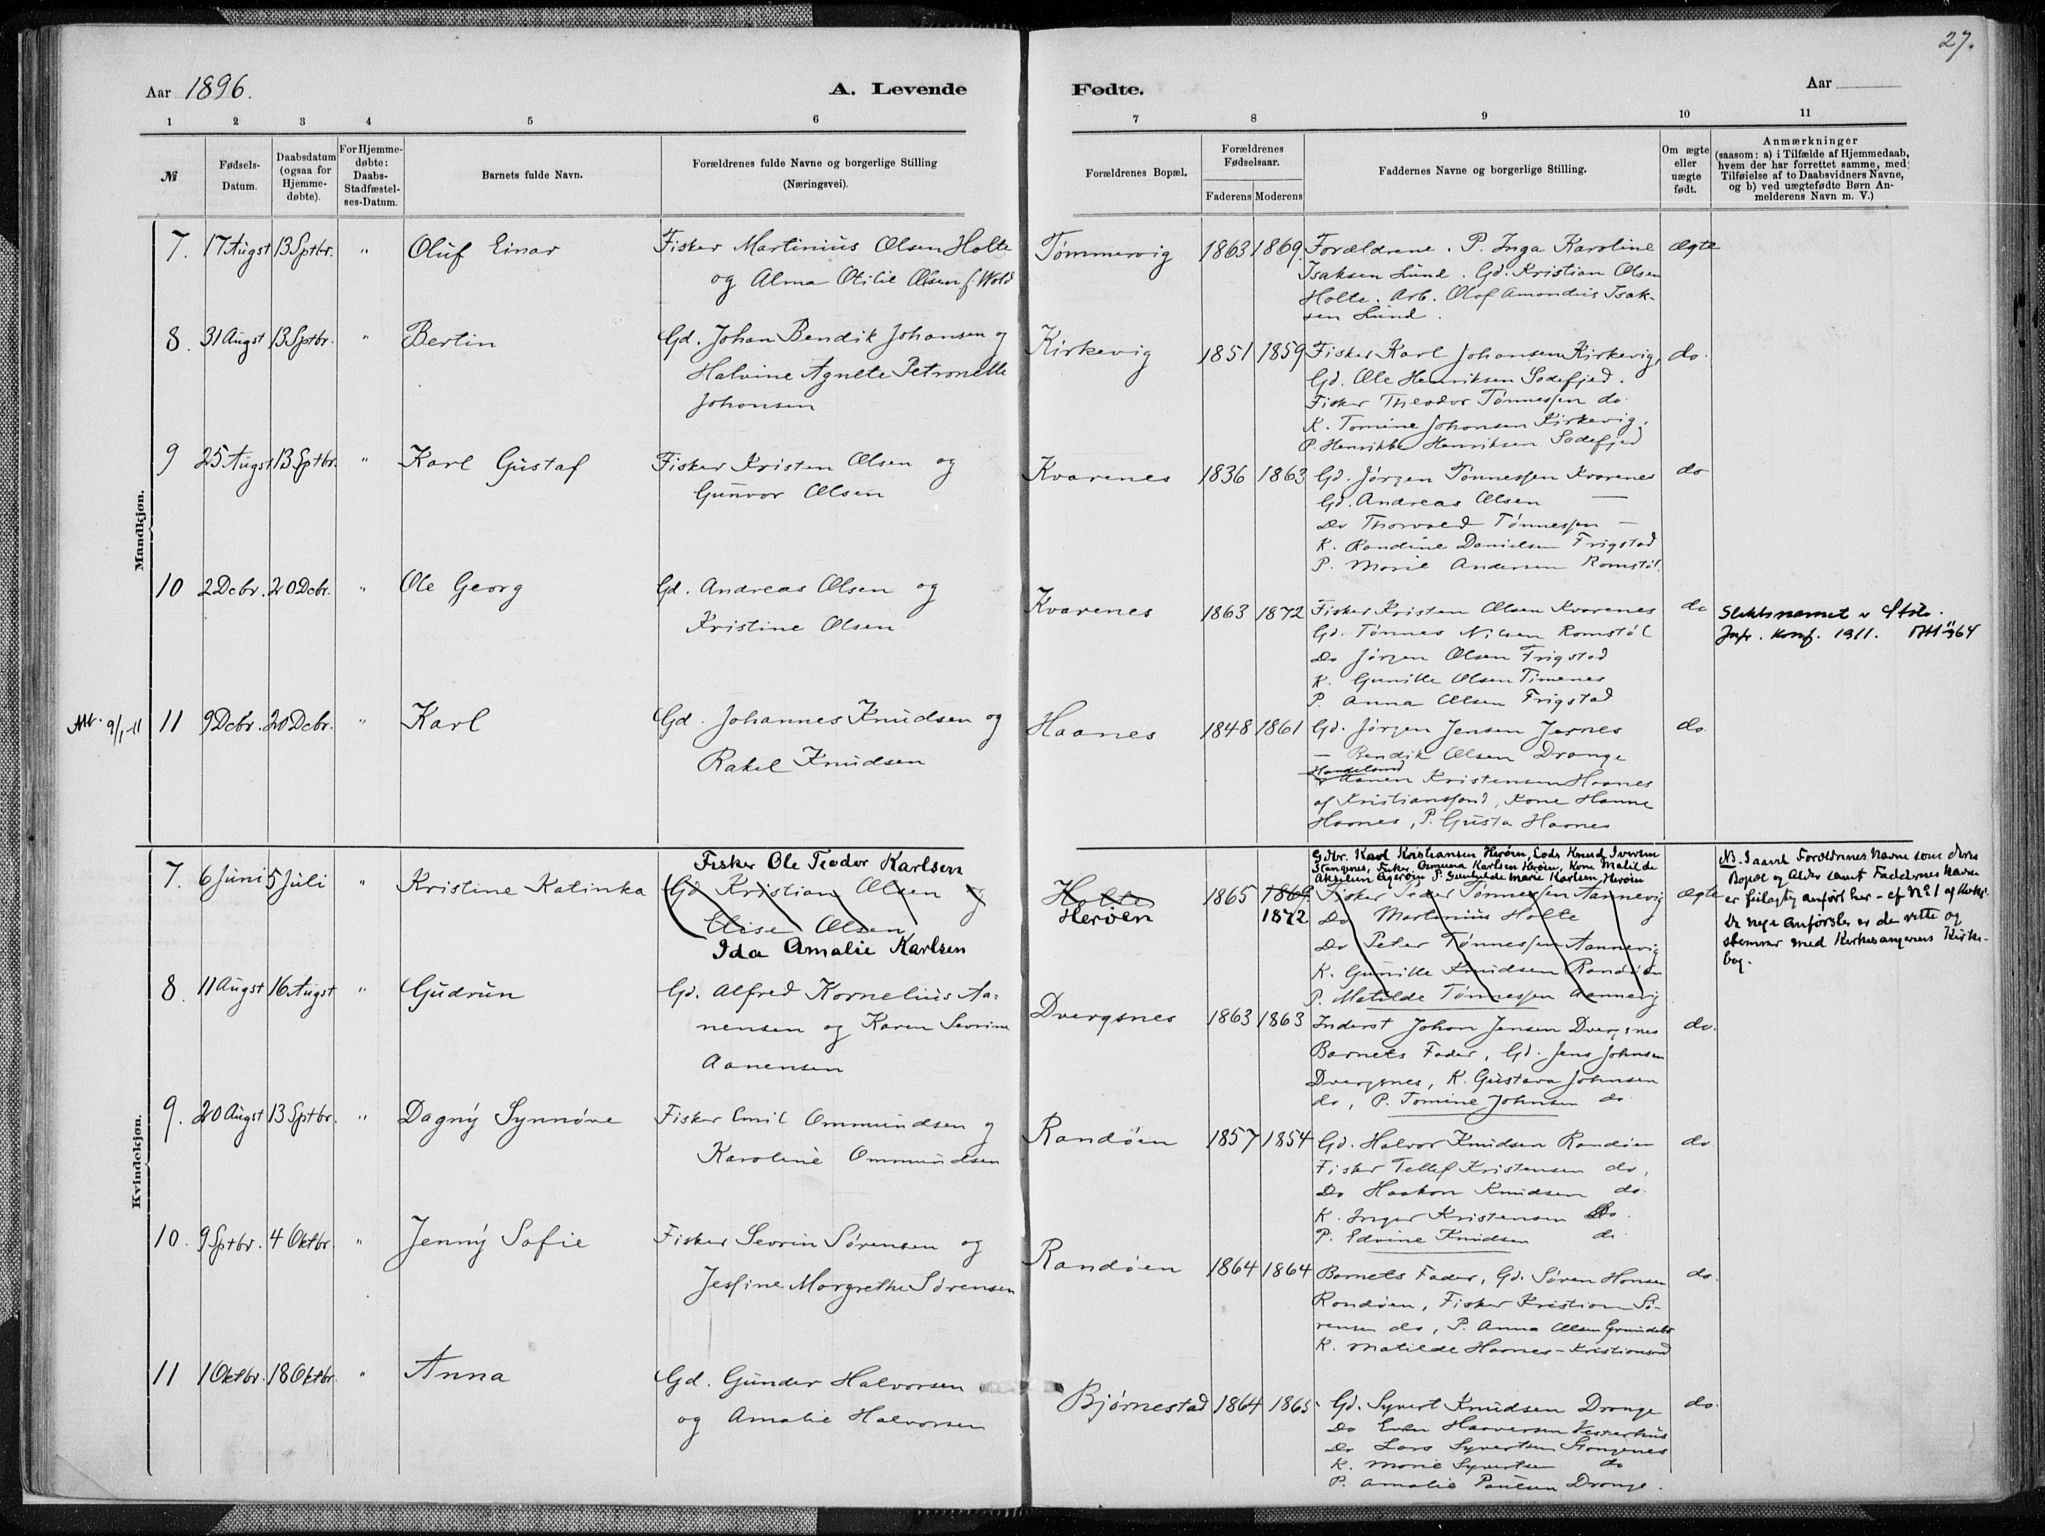 27.
Aar 1896.
A. Levende
Fødte.
Aar
1 2 3 4 5 6 7 8 9 10 11
№
Fødsels-
Datum.
Daabsdatum
(ogsaa for
Hjemme-
døbte).
For Hjemme-
døbte:
Daabs-
Stadfæstel-
ses-Datum.
Barnets fulde Navn.
Forældrenes fulde Navne og borgerlige Stilling
(Næringsvei).
Forældrenes Bopæl.
Forældrenes
Fødselsaar.
Faderens Moderens
Faddernes Navne og borgerlige Stilling.
Om ægte
eller
uægte
født.
Anmærkninger
(saasom: a) i Tilfælde af Hjemmedaab,
hvem der har forrettet samme, med
Tilføielse af to Daabsvidners Navne,
og b) ved uægtefødte Børn An-
melderens Navn m. V.)
Mandkjøn.
7. 17 Augst 13 Sptbr. " Oluf Einar
Fisker Martinius Olsen Holte
og Alma Otilie Olsen f. Wold
Tømmervig 1863 1869
Forældrene. P. Inga Karoline
Isaksen Lund. Gd. Kristian Olsen
Holte. Arb. Olof Amandus Isak-
sen Lund.
ægte
8. 31 Augst 13 Sptbr. " Bertin
Gd. Johan Bendik Johansen og
Halvine Agnete Petronelle
Johansen
Kirkevig 1851 1859
Fisker Karl Johansen Kirkevig,
Gd. Ole Henriksen Sodefjed.
Fisker Theodor Tønnessen do.
K. Tomine Johansen Kirkevig.
P. Henrikke Henriksen Sodefjed
do.
9 25 Augst 13 Sptbr. " Karl Gustaf
Fisker Kristen Olsen og
Gunvor Olsen
Kvarenes 1836 1863
Gd. Jørgen Tønnessen Kvarenes
Gd. Andreas Olsen —
Do Thorvald Tønnessen —
K. Randine Danielsen Frigstad
P. Marie Andersen Romstøl.
do
10 2 Dcbr. 20 Dcbr. " Ole Georg
Gd. Andreas Olsen og
Kristine Olsen
Kvarenes 1863 1872
Fisker Kristen Olsen Kvarenes
Gd. Tønnes Nilsen Romstøl
Do Jørgen Olsen Frigstad
K. Gunille Olsen Timenes
P. Anna Olsen Frigstad
do
Slektsnavnet
Jfr. konf. 1911.
Att. 9/1-11
11 9 Dcbr. 20 Dcbr. " Karl
Gd. Johannes Knudsen og
Rakel Knudsen
Haanes 1848 1861
Gd. Jørgen Jensen Jernes
— Bendik Olsen Drange
Kristensen Haanes
af Kristianssand, Kone Hanne
Haanes, P. Gusta Haanes
do.
Kvindekjøn.
7. 6 Juni 5 Juli " Kristine Katinka
Fisker Ole Teodor Karlsen
Gd Kristian Olsen og
Elise Olsen
Ida Amalie Karlsen
Holte
Herøen
1865 1869
1872
Gdbr. Karl Kristiansen Herøen, Lods Knud Ivertsen
Stangenes, Fisker Osmund Karlsen Herøen, Kone Matilde
Akselsen Ægerøen P. Gunhilde Marie Karlsen Herøen
Fisker Peder Tønnessen Aannevig
Do Martinius Holte
Do Peter Tønnessen Aannevig
K. Gunille Knudsen Randøen
P. Matilde Tønnessen Aannevig
ægte
NB. Saavel Forældrenes Navne som deres
Bopæl og Alder samt Faddernes Navne
er feilagtig anført her – cf № 1 af
De nye Anførsler er de rette og
stemmer med Kirkesangerens Kirke-
bog.
8. 11 Augst 16 Augst " Gudrun
Gd. Alfred Kornelius Aa-
nensen og Karen Severine
Aanensen
Dvergsnes 1863 1863
Inderst Johan Jensen Dvergsnes
Barnets Fader, Gd. Jens Johnsen
Dvergsnes, K. Gustava Johnsen
do, P. Tomine Johnsen do.
do.
9. 20 Augst 13 Sptbr. " Dagny Synnøve
Fisker Emil Ommundsen og
Karoline Ommundsen
Randøen 1857 1854
Gd. Halvor Knudsen Randøen
Fisker Tellef Kristensen do,
Do Haakon Knudsen do.
K. Inger Kristensen do.
P. Edvine Knudsen do
do
10. 9 Sptbr. 4 Oktbr. " Jenny Sofie
Fisker Sevrin Sørensen og
Jesfine Margrethe Sørensen
Randøen 1864 1864
Barnets Fader, Gd. Søren Hansen
Randøen, Fisker Kristian Sø-
rensen do, P. Anna Olsen
K. Matilde Haanes – Kristianssand
do.
11 1 Oktbr. 18 Oktbr. " Anna
Gd. Gunder Halvorsen
og Amalie Halvorsen
Bjørnestad 1864 1865
Gd. Syvert Knudsen Drange
Do Even Haaversen Vesterhus
Do Lars Syvertsen Stangenes
K. Marie Syvertsen do
P. Amalie Paulsen Drange.
do.